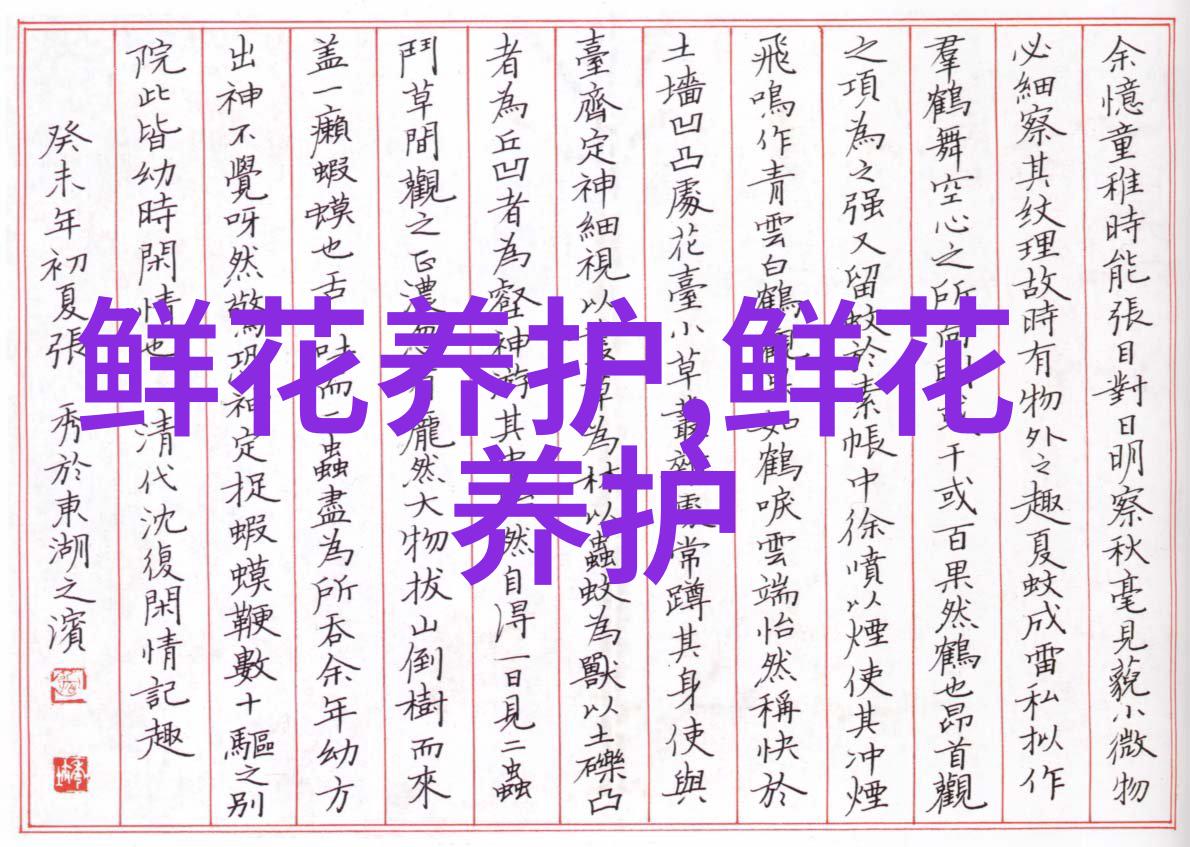 鲜花养护,鲜花
养护
余憶童稚時能張目對日明察秋毫見藐小微物
必細察其紋理故時有物外之趣夏蚊成雷私拟作
羣鶴舞空心之所向千或百果然鶴也昂首觀
之項為之强又留蚊於素帳中徐噴以煙使其冲煙
飛鳴作青雲白鶴觀如鶴唳雲端怡然稱快於
土墻凹凸處花臺小草叢雜處常蹲其身使與
臺齊定神細視以叢草為林以蟲蚊為獸以土礫凸
者為丘凹者為壑神游其然自得一日見二蟲
鬥草間觀之正濃忽有龐然大物拔山倒樹而來
盖一癩蝦蟆也舌吐而二蟲盡為所吞余年幼方
出神不覺呀然驚恐神定捉蝦蟆鞭數十驅之别
院此皆幼時閑情也 清代沈復閑情記趣
癸未年初夏張 秀於東湖之濱